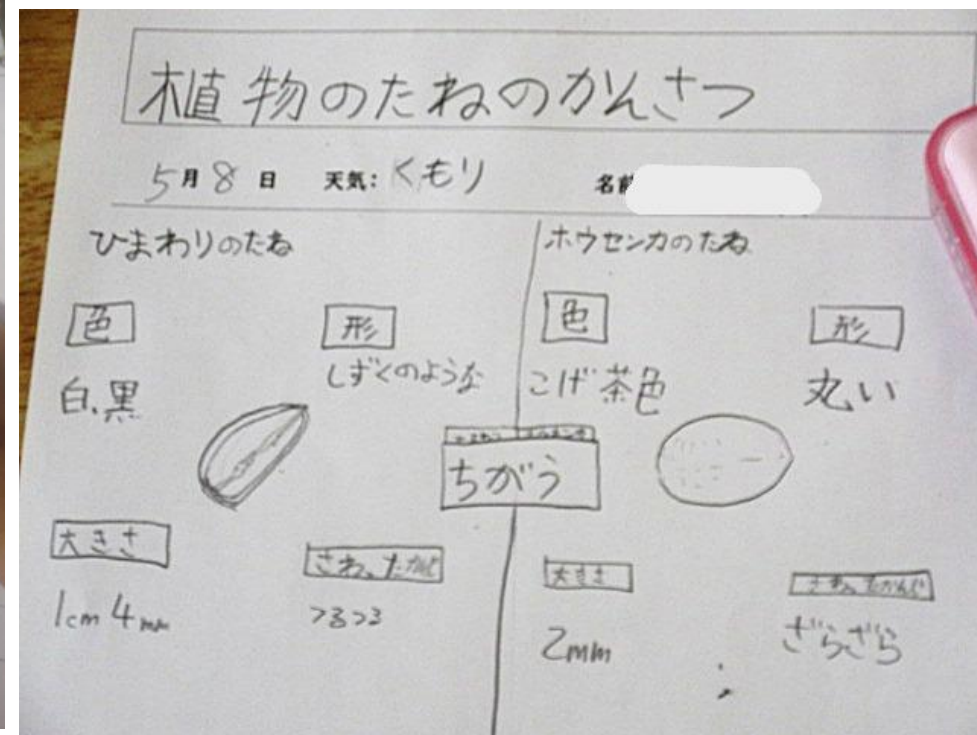 植物のたねのかんさつ
5月8日 天気: くもり 名前
ひまわりのたね
色
白、黒
形
しずくのような
大きさ
1cm4mm
さわったかんじ
つるつる
ちがう
ホウセンカのたね
色
こげ茶色
形
丸い
大きさ
2mm
さわったかんじ
ざらざら